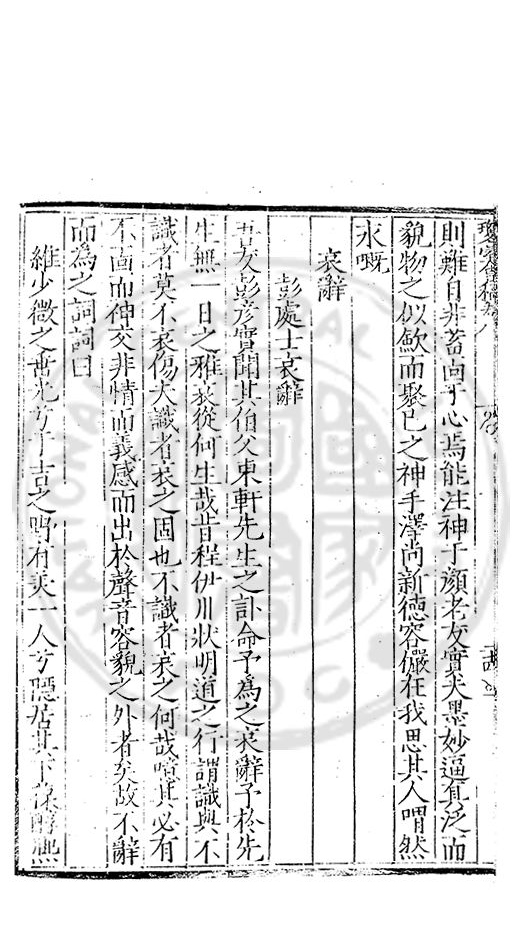 則難自非蓄向于心焉能注神于顏老友實夫墨妙逼真泛而
貌物之似歛而聚已之神手澤尚新德容儼在我思其人喟然
永嘅
哀辭
彭處士哀辭
吾友彭彥實聞其伯父東軒先生之訃命予為之哀辭予於先
生無一日之雅哀從何生哉昔程伊川狀明道之行謂識與不
識者莫不哀傷夫識者哀之固也不識者哀之何哉噫其必有
不面而神交非情而義感而出於聲音容貌之外者矣故不辭
而為之詞詞曰
維少微之世光兮于吉之野有美一人兮隱居其下葆醇熈